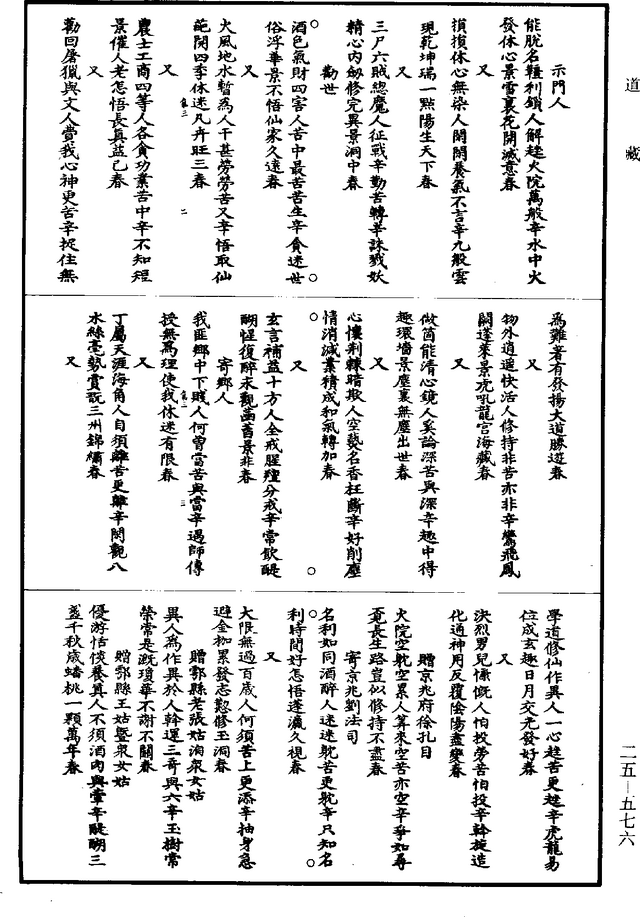 道藏
示門人
能脫名韁利鎖人解趂火院萬般辛水中火
發休心景雪裏花開滅意春
又
損損休心無染人閑閑養氣不言辛九般雲
現乾坤瑞一點陽生天下春
又
三尸六賊總魔人征戰辛勤苦轉辛誅戮妖
精心內劒修完異景洞中春
勸世
酒色氣財四害人苦中最苦苦生辛貪迷世
俗浮華景不悟仙家久遠春
又
火風地水暫為人干甚勞勞苦又辛悟取仙
葩開四季休迷凡卉旺三春
又
農士工商四等人各貪功業苦中辛不知短
景催人老怎悟長真益己春
又
勸回屠獵與文人賞我心神更苦辛捉住無
為難著有發揚大道勝遊春
又
物外逍遥快活人修持非苦亦非辛鸞飛鳳
闕蓬萊景虎吼龍宮海藏春
又
做箇能清心鏡人奚論深苦與深辛趣中得
趣環墻景塵裏無塵出世春
又
心懷荆棘暗欺人空褻名香枉斷辛好削塵
情消滅業精成和氣轉加春
又
玄言補益十方人全戒腥羶分戒辛常飲醍
醐惺復醉永觀舊景非春
寄鄉人
我匪鄉中下賤人何曾當苦與當辛遇師傳
授無為理使我休迷有限春
又
丁屬天涯海角人自須離苦更離辛閑觀八
水絲毫㔟賞翫三州錦繡春
又
學道修仙作異人一心趂苦更趂辛虎龍易
位成玄趣日月交光發好春
又
決烈男兒慷慨人怕投勞苦怕投辛斡旋造
化通神用反覆陰陽盡變春
贈京兆府徐孔目
火院空躭空累人算來空苦亦空辛爭如尋
覔長生路豈似修持不盡春
寄京兆劉法司
名利如同酒醉人迷迷躭苦更躭辛只知名
利時間好怎悟蓬瀛久視春
又
大限無過百歲人何須苦上更添辛抽身急
避金枷累發志懃修玉洞春
贈鄠縣老張姑洎衆女姑
異人為作異於人斡運三奇與六辛玉樹常
榮常是翫瓊華不謝不關春
贈鄠縣王姑暨衆女姑
優游恬惔養真人不須酒肉與葷辛醍醐三
盞千秋歲蟠桃一顆萬年春
二五—五七六